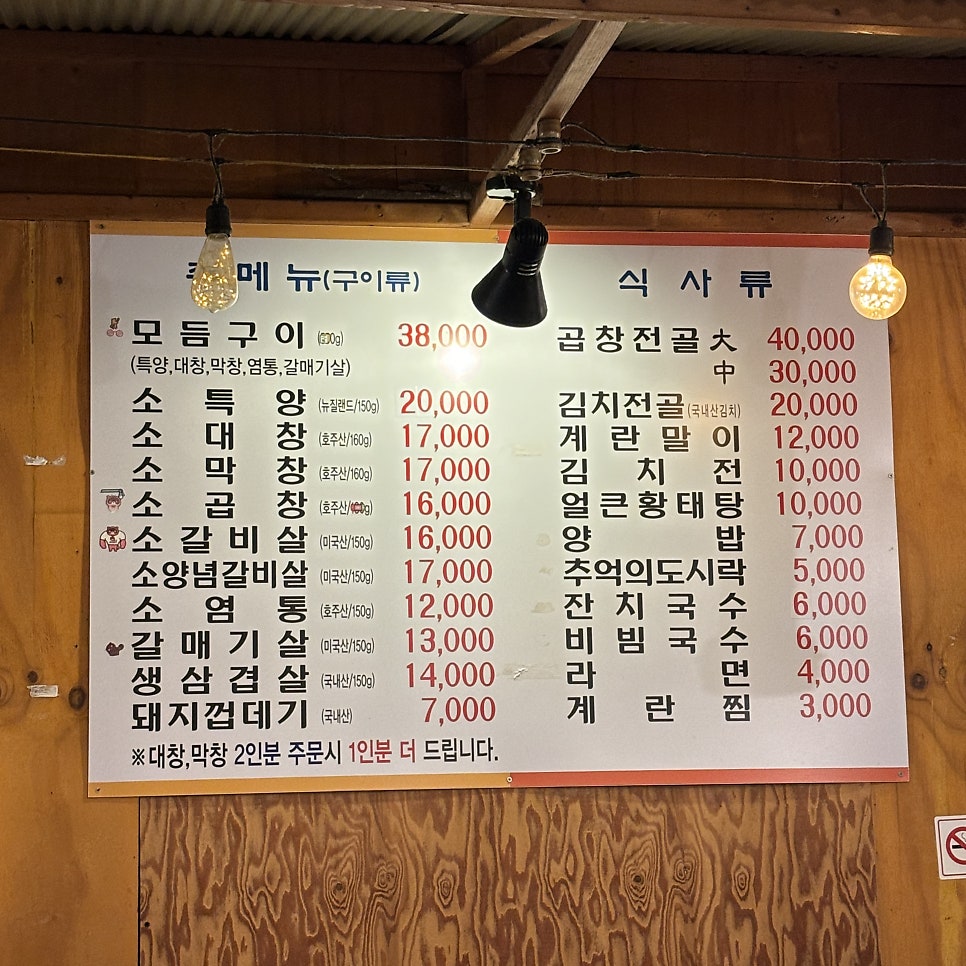 메 뉴 (구이류)
모 듬 구 이 38,000
(특양,대창,막창,염통,갈매기살)
소 특 양 (뉴질랜드/150g) 20,000
소 대 창 (호주산/160g) 17,000
소 막 창 (호주산/160g) 17,000
소 곱 창 (호주산/ 16,000
소 갈 비 살 (미국산/150g) 16,000
소양념갈비살 (미국산/150g) 17,000
소 염 통 (호주산/150g) 12,000
갈 매 기 살 (미국산/150g) 13,000
생 삼 겹 살 (국내산/150g) 14,000
돼지껍데기 (국내산) 7,000
※대창,막창 2인분 주문시 1인분 더 드립니다.
식 사 류
곱창전골 大 40,000
中 30,000
김치전골 (국내산김치) 20,000
계 란 말 이 12,000
김 치 전 10,000
얼큰황태탕 10,000
양 밥 7,000
추억의도시락 5,000
잔 치 국 수 6,000
비 빔 국 수 6,000
라 면 4,000
계 란 찜 3,000